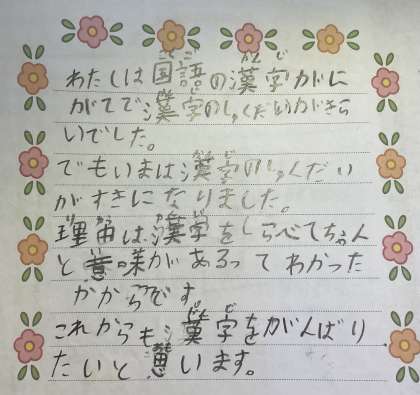 わたしは国語の漢字がに
がてで漢字のしゅくだいがきら
いでした。
でもいまは漢字のしゅくだい
がすきになりました。
理由は漢字をしらべてちゃん
と意味があるってわかった
がからです。
これからも漢字をがんばり
たいと思います。